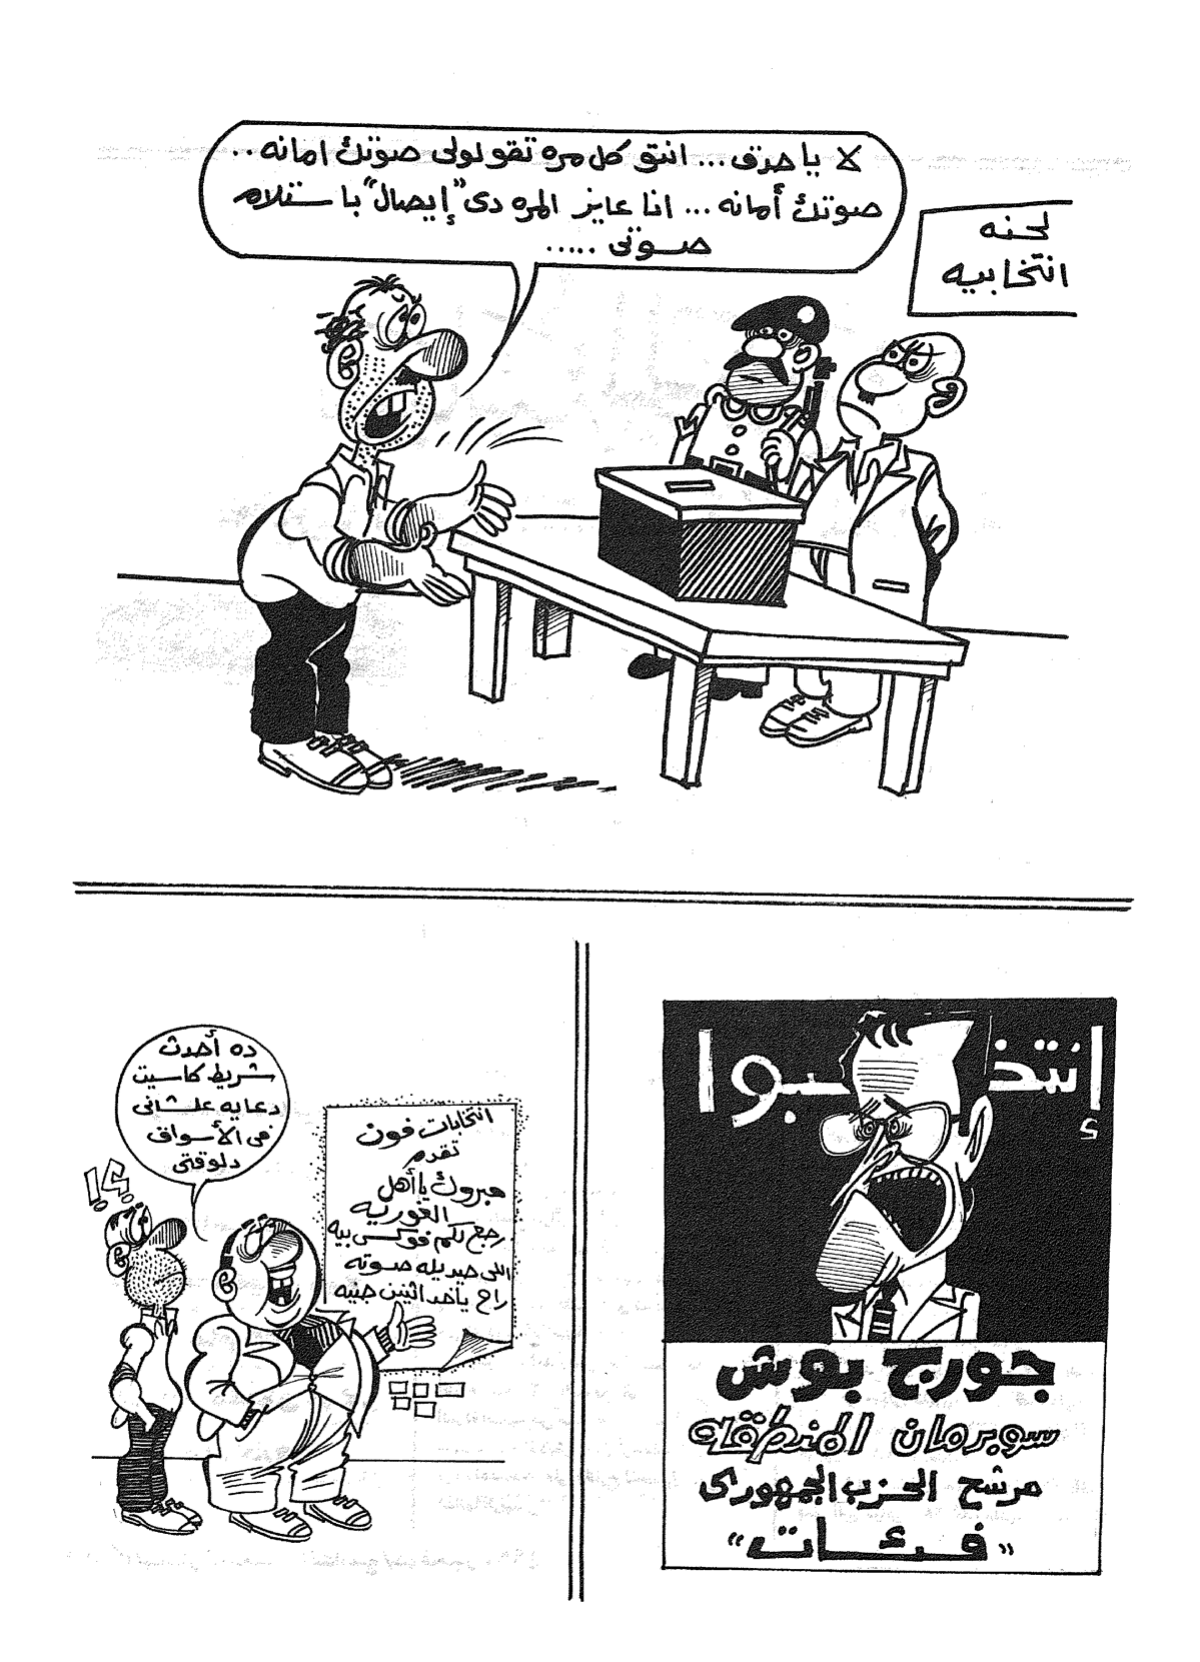 لا ياحدق... انتو كل مره تقولولى صوتك امانه..
صوتك أمانه... انا عايز المره دى "إيصال" باستلام
صوتى .....
لجنه
انتخابيه
ده أحدث
شريط كاسيت
دعايه علشانى
فى الأسواق
دلوقتى
؟!
انتخابات فون
تقدم
مبروك يا أهل
الغوريه
رجع لكم فوكس بيه
اللى حيديله صوته
راح ياخد اتنين جنيه
إنتخبوا
جورج بوش
سوبرمان المنطقه
مرشح الحزب الجمهورى
"فئات"